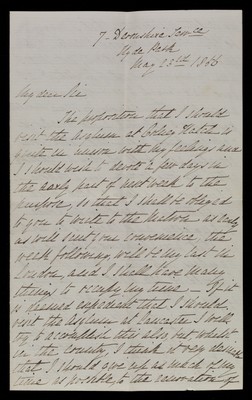 7 Devonshire Terrace
Hyde Park
May 23rd 1856
My dear Sir
The proposition that I should
visit the Asylum at Colney Hatch is
quite in unison with my feelings and
I should wish to devote a few days in
the early part of next week to the
purpose, so that I shall be obliged
to you to write to the Matron as early
as will suit your convenience, the
week following will be my last in
London, and I shall have many
things to occupy my time. If it
is deemed expedient that I should
visit the Asylum at Lancaster I will
try to accomplish this also, but, whilst
in the country, I think it very
that I should give up as much of my
time as possible to the of